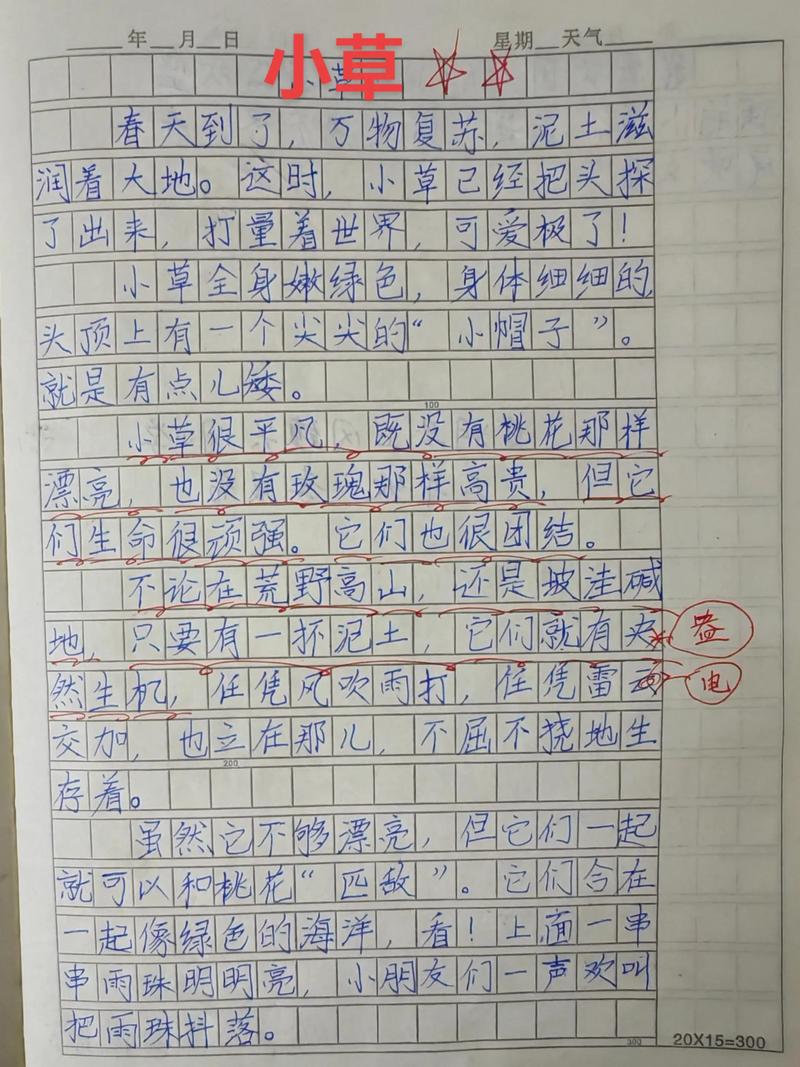 ____年__月__日 星期__天气____
小草
春天到了，万物复苏，泥土滋
润着大地。这时，小草已经把头探
了出来，打量着世界，可爱极了！
小草全身嫩绿色，身体细细的，
头顶上有一个尖尖的“小帽子”。
就是有点儿矮。
100
小草很平凡，既没有桃花那样
漂亮，也没有玫瑰那样高贵，但它
们生命很顽强。它们也很团结。
不论在荒野高山，还是坡洼碱
地，只要有一抔泥土，它们就有央 盎
然生机，任凭风吹雨打，任凭雷云 电
交加，也立在那儿，不屈不挠地生
200
存着。
虽然它不够漂亮，但它们一起
就可以和桃花“匹敌”。它们合在
一起像绿色的海洋，看！上面一串
串雨珠明明亮，小朋友们一声欢叫
把雨珠抖落。
300
20X15=300